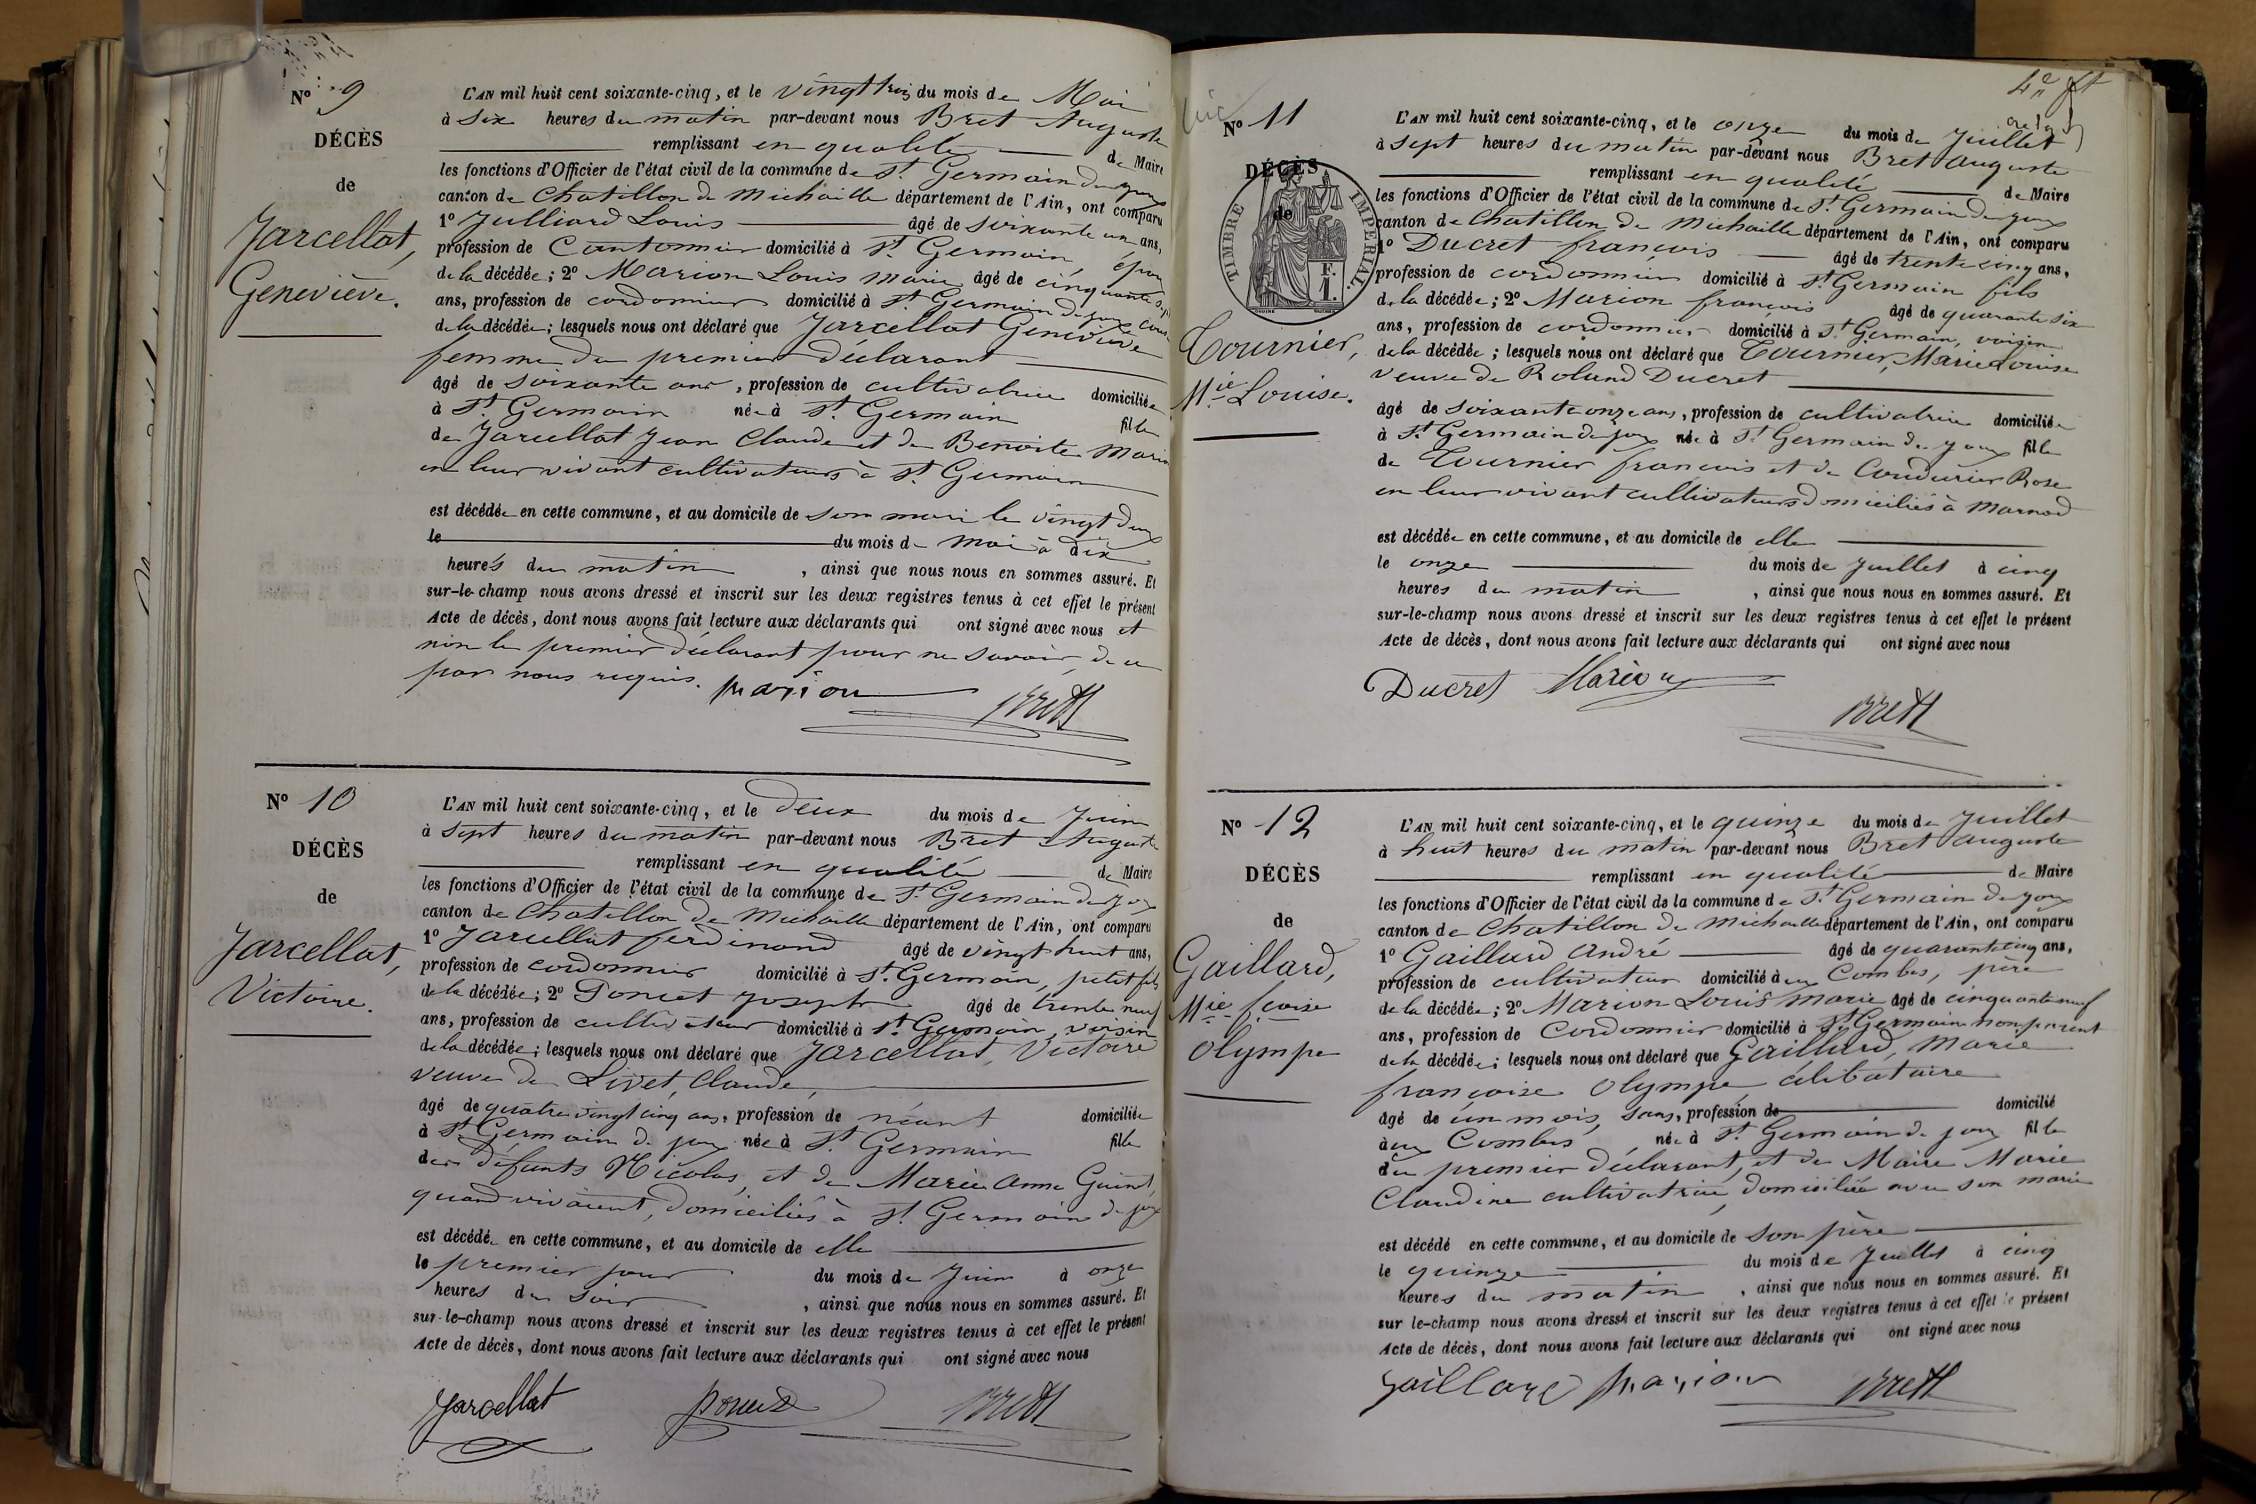 N° 9
DÉCÈS
de
Jarcellat,
Geneviève.
L'AN mil huit cent soixante-cinq, et le vingt trois du mois de Mai
à six heures du matin par-devant nous Bret Auguste
remplissant en qualité de Maire
les fonctions d'Officier de l'état civil de la commune de St. Germain de Joux
canton de Chatillon de Michaille département de l'Ain, ont comparu
1° Julliard Louis âgé de soixante un ans,
profession de Cantonnier domicilié à St. Germain, époux
de la décédée; 2° Marion Louis Marie âgé de cinquante
ans, profession de cordonnier domicilié à St. Germain de Joux
de la décédée; lesquels nous ont déclaré que Jarcellat Geneviève
femme du premier déclarant
âgé de soixante ans, profession de cultivatrice domiciliée
à St. Germain née à St. Germain fille
de Jarcellat Jean Claude et de Benoite Marion
en leur vivant cultivateurs à St. Germain
est décédée en cette commune, et au domicile de son mari le vingt deux
le du mois de Mai à dix
heures du matin, ainsi que nous nous en sommes assuré. Et
sur-le-champ nous avons dressé et inscrit sur les deux registres tenus à cet effet le présent
Acte de décès, dont nous avons fait lecture aux déclarants qui ont signé avec nous et
non le premier déclarant pour ne savoir, de ce
par nous requis. Marion Brett
N° 10
DÉCÈS
de
Jarcellat,
Victoire.
L'AN mil huit cent soixante-cinq, et le deux du mois de Juin
à sept heures du matin par-devant nous Bret Auguste
remplissant en qualité de Maire
les fonctions d'Officier de l'état civil de la commune de St. Germain de Joux
canton de Chatillon de Michaille département de l'Ain, ont comparu
1° Jarcellat ferdinand âgé de vingt huit ans,
profession de cordonnier domicilié à St. Germain, petit fils
de la décédée; 2° Poncet Joseph âgé de trente neuf
ans, profession de cultivateur domicilié à St. Germain, voisin
de la décédée; lesquels nous ont déclaré que Jarcellat, Victoire
veuve de Livet, Claude,
âgé de quatre vingt cinq ans, profession de néant domiciliée
à St. Germain de joux née à St. Germain fille
des défunts Nicolas, et de Marie Anne
quand vivaient, domiciliés à St. Germain de joux
est décédée en cette commune, et au domicile de elle
le premier jour du mois de Juin à onze
heures du soir, ainsi que nous nous en sommes assuré. Et
sur-le-champ nous avons dressé et inscrit sur les deux registres tenus à cet effet le présent
Acte de décès, dont nous avons fait lecture aux déclarants qui ont signé avec nous
Jarcellat Poncet Brett
4e ft
N° 11
DÉCÈS
de
TIMBRE IMPERIAL.
Tournier,
Mie Louise.
L'AN mil huit cent soixante-cinq, et le onze du mois de Juillet
à sept heures du matin par-devant nous Bret Auguste
remplissant en qualité de Maire
les fonctions d'Officier de l'état civil de la commune de St. Germain de joux
canton de Chatillon de Michaille département de l'Ain, ont comparu
1° Ducret françois âgé de trente cinq ans,
profession de cordonnier domicilié à St. Germain fils
de la décédée; 2° Marion françois âgé de quarante six
ans, profession de cordonnier domicilié à St. Germain, voisin
de la décédée; lesquels nous ont déclaré que Tournier, Marie Louise
veuve de Roland Ducret
âgé de soixante onze ans, profession de cultivatrice domiciliée
à St. Germain de joux née à St. Germain de Joux fille
de Tournier françois et de Coudurier Rose
en leur vivant cultivateurs domiciliés à Marnod
est décédée en cette commune, et au domicile de elle
le onze du mois de Juillet à cinq
heures du matin, ainsi que nous nous en sommes assuré. Et
sur-le-champ nous avons dressé et inscrit sur les deux registres tenus à cet effet le présent
Acte de décès, dont nous avons fait lecture aux déclarants qui ont signé avec nous
Ducret Marion Brett
N° 12
DÉCÈS
de
Gaillard,
Mie fçoise
Olympe
L'AN mil huit cent soixante-cinq, et le quinze du mois de Juillet
à huit heures du matin par-devant nous Bret Auguste
remplissant en qualité de Maire
les fonctions d'Officier de l'état civil de la commune de St. Germain de Joux
canton de Chatillon de Michaille département de l'Ain, ont comparu
1° Gaillard André âgé de quarante cinq ans,
profession de cultivateur domicilié à aux Combes, père
de la décédée; 2° Marion Louis Marie âgé de cinquante neuf
ans, profession de Cordonnier domicilié à St. Germain non parent
de la décédée; lesquels nous ont déclaré que Gaillard, Marie
françoise Olympe célibataire
âgé de un mois, sans, profession de domicilié
à aux Combes née à St. Germain de joux fille
du premier déclarant, et de Maire Marie
Claudine cultivatrice, domiciliée avec son marie
est décédé en cette commune, et au domicile de son père
le quinze du mois de Juillet à cinq
heures du matin, ainsi que nous nous en sommes assuré. Et
sur le-champ nous avons dressé et inscrit sur les deux registres tenus à cet effet le présent
Acte de décès, dont nous avons fait lecture aux déclarants qui ont signé avec nous
Gaillard Marion Brett